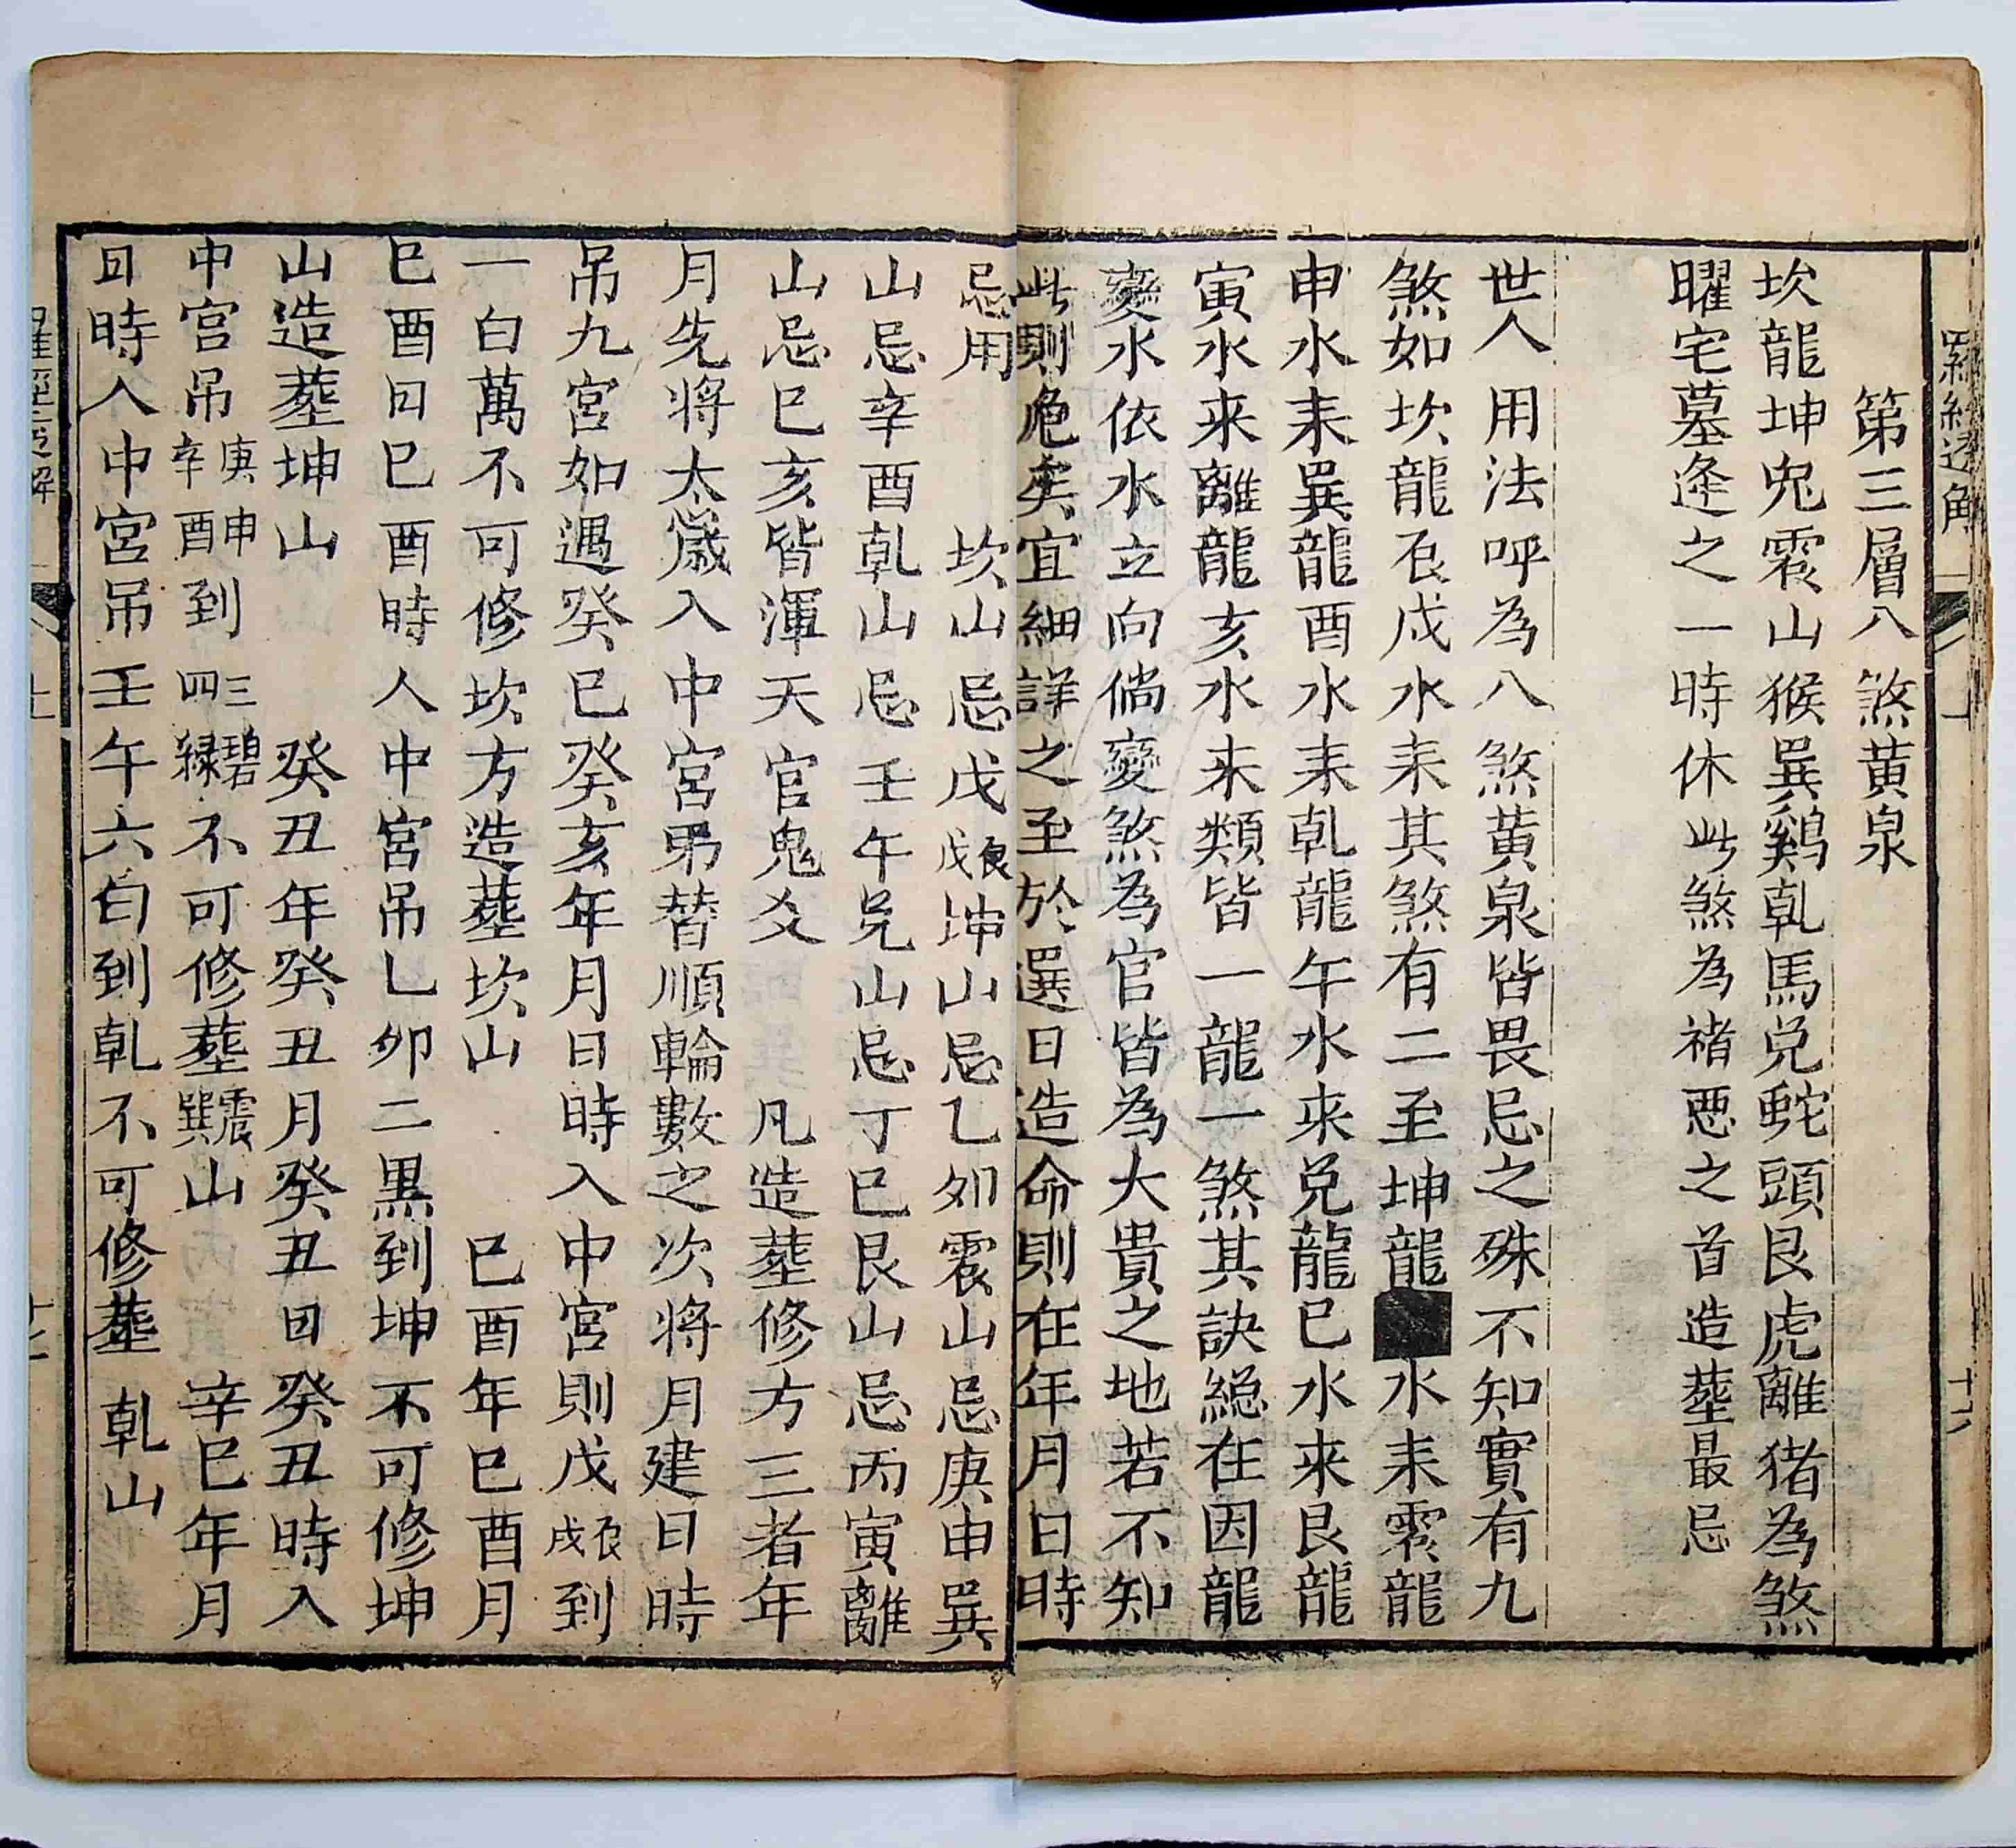 羅經透解
十八
第三層八煞黄泉
坎龍坤兔震山猴巽鷄乾馬兑蛇頭艮虎離猪為煞
曜宅墓逢之一時休此煞為禇惡之首造塟最忌
世人用法呼為八煞黄泉皆畏忌之硃不知實有九
煞如坎龍辰戍水来其煞有二至坤龍水来震龍
申水来巽龍酉水来乾龍午水来兑龍巳水来艮龍
寅水来離龍亥水来類皆一龍一煞其訣總在因龍
變水依水立向倘變煞為官皆為大貴之地若不知
此則危矣宜細詳之至於選日造命則在年月日時
忌用 坎山忌戊辰戊戌坤山忌乙卯震山忌庚申巽
山忌辛酉乾山忌壬午兑山忌丁巳艮山忌丙寅離
山忌巳亥皆渾天官鬼爻 凡造塟修方三者年
月先将太歲入中宮弔替順輪數之次将月建日時
吊九宮如遇癸巳癸亥年月日時入中宮則戊辰戌到
一白萬不可修坎方造塟坎山 巳酉年巳酉月
巳酉日巳酉時人中宮吊乚卯二黒到坤不可修坤
山造塟坤山 癸丑年癸丑月癸丑日癸丑時入
中宮吊庚申辛酉到三碧四緑不可修塟震巽山 辛巳年月
日時入中宮吊壬午六白到乾不可修塟乾山